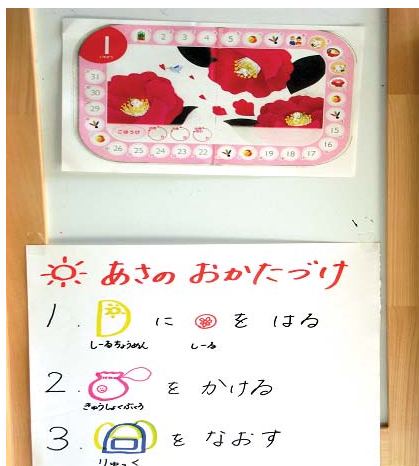 1
2 3 4 5
31
30
29
15
16
26 25 24 23 22 19 18 17
あさの おかたづけ
1. に を はる
しーるちょうめん しーる
2. を かける
きゅうしょくぶくろ
3. を なおす
りゅっく